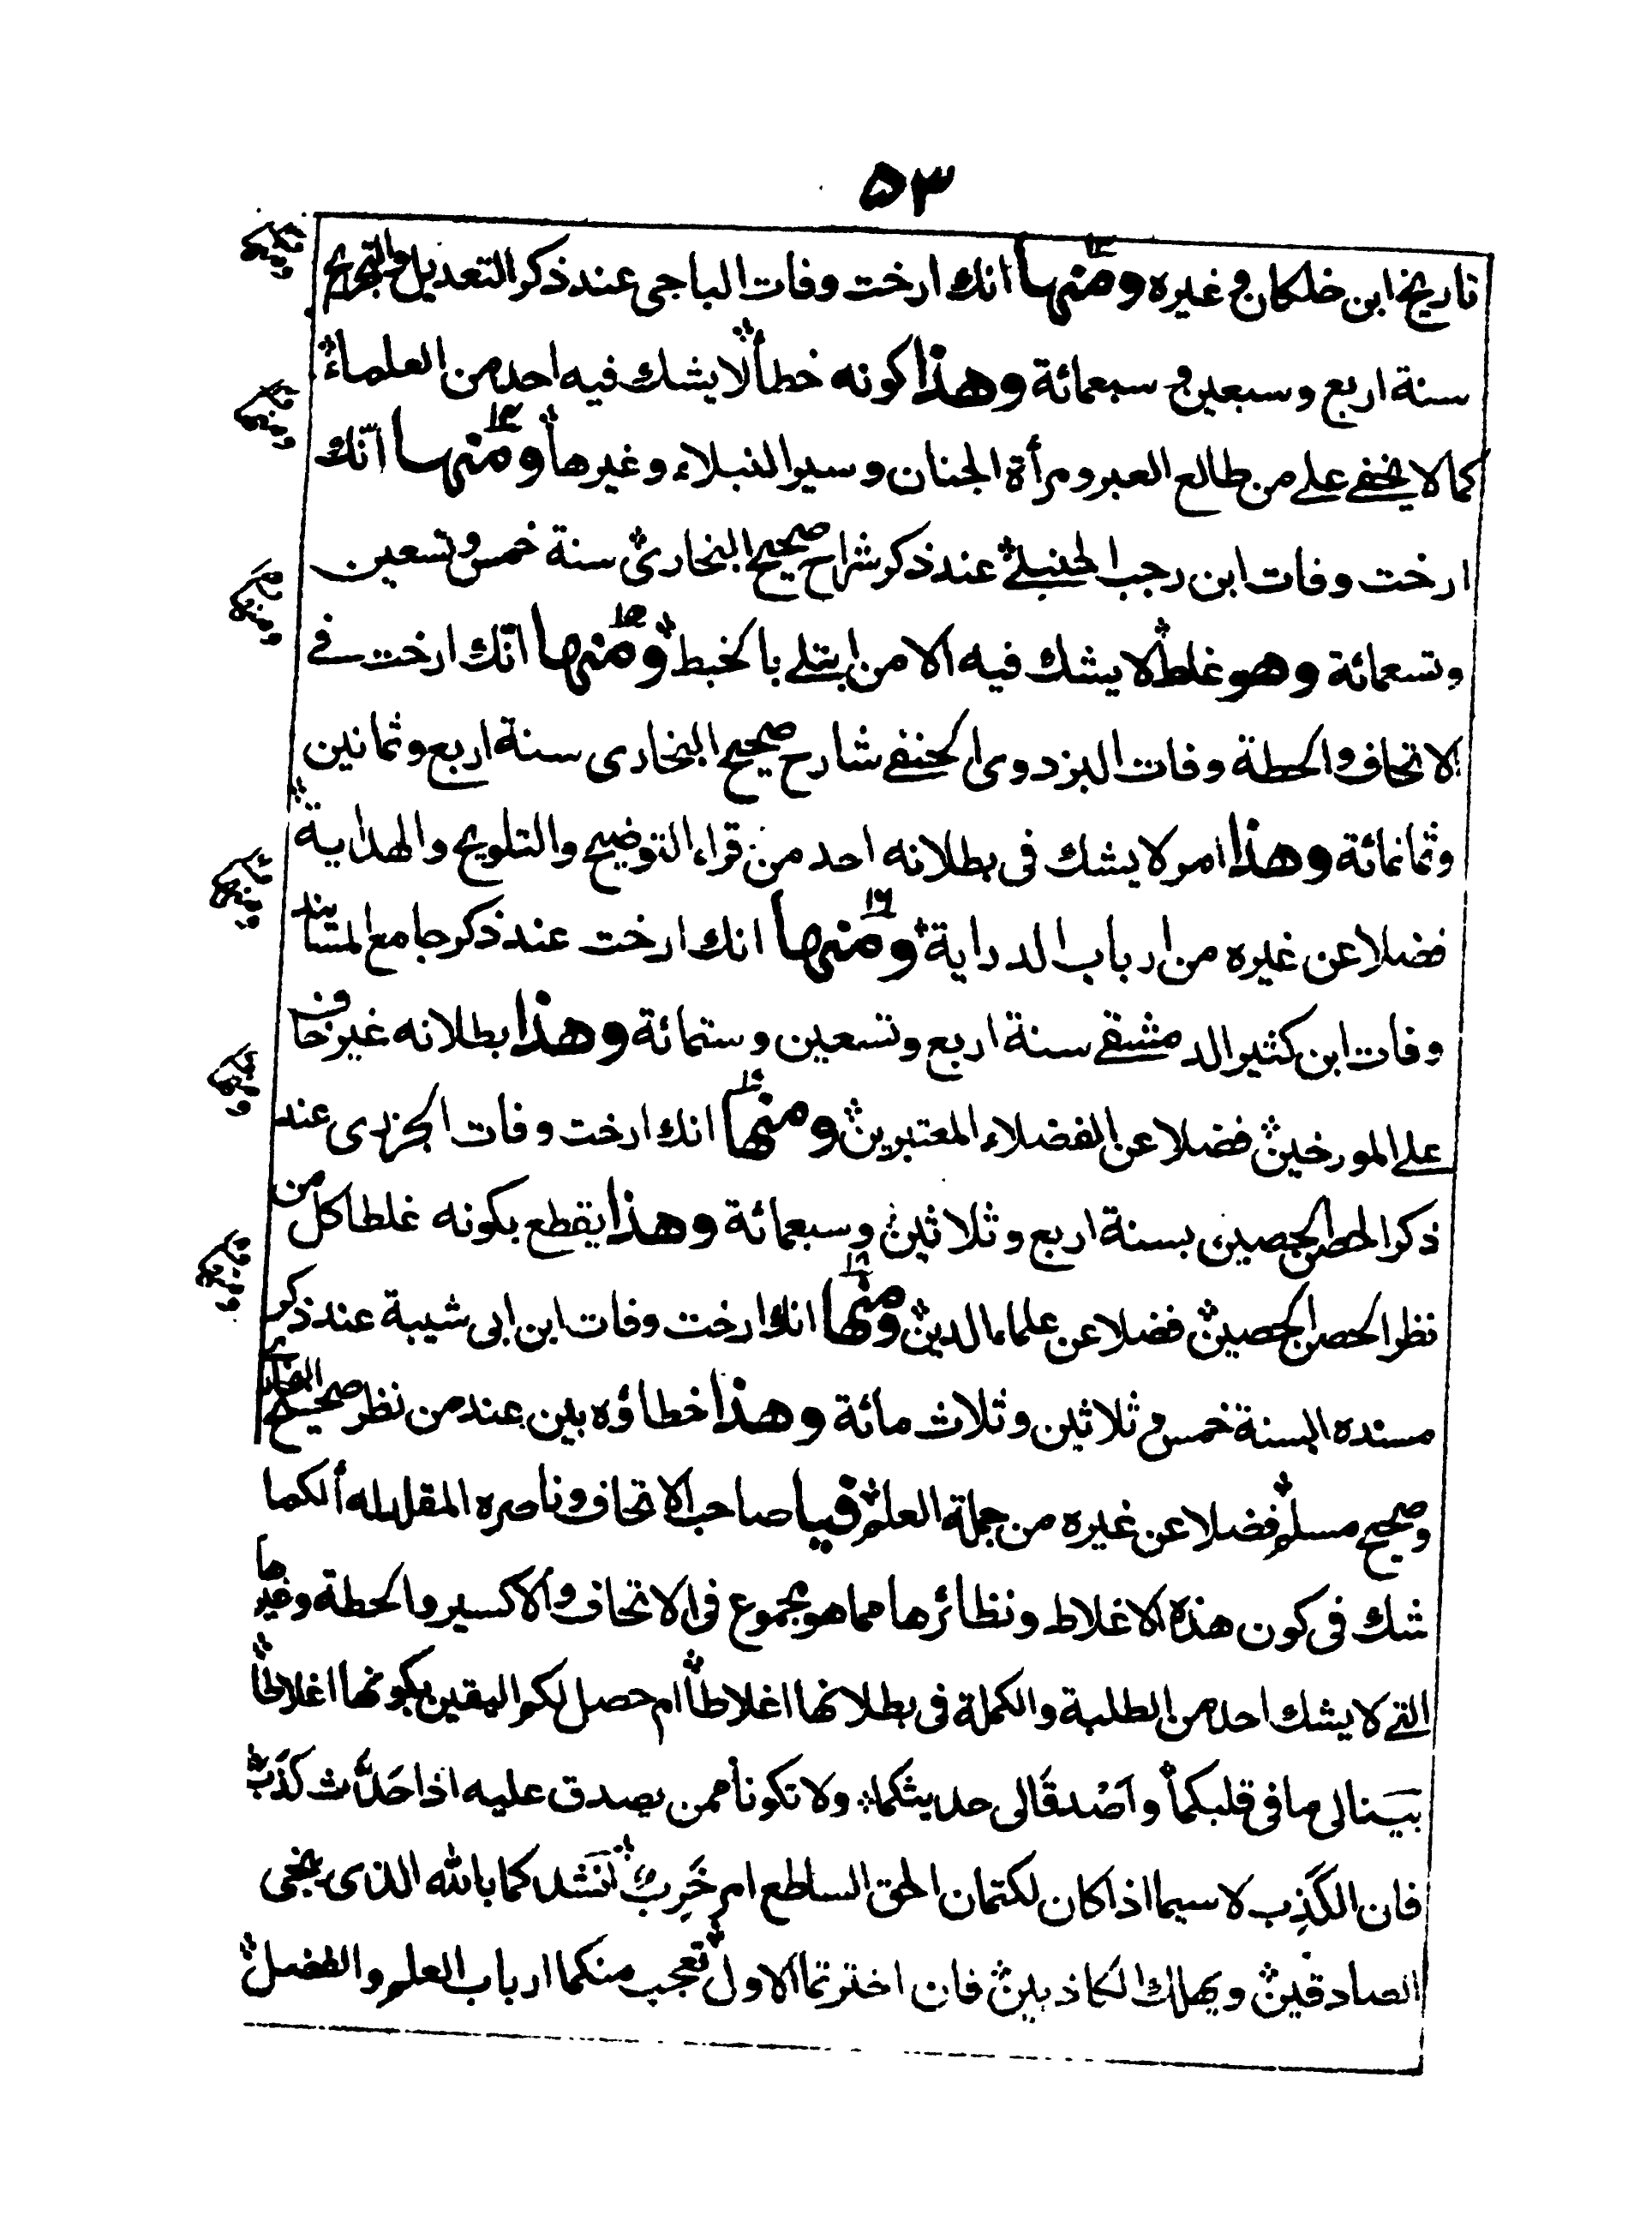 ۵۳
تاريخ ابن خلكان وغيره ومنها ١٣ انك ارخت وفات الباجى عند ذكر التعديل والتجريح
سنة اربع وسبعين وسبعمائة وهذا كونه خطأ لا يشك فيه احد من العلماء
كما لا يخفى على من طالع العبر ومرأة الجنان وسير النبلاء وغيرها ومنها ١٤ انّك
ارخت وفات ابن رجب الحنبلى عند ذكر شراح صحيح البخارى سنة خمس وتسعين
وتسعمائة وهو غلط لا يشك فيه الا من ابتلى بالخبط ومنها ١٥ انّك ارخت فى
الاتحاف والحطة وفات البزدوى الحنفى شارح صحيح البخارى سنة اربع وثمانين
وثمانمائة وهذا امر لا يشك فى بطلانه احد من قراء التوضيح والتلويح والهداية
فضلا عن غيره من ارباب الدراية ومنها ١٦ انك ارخت عند ذكر جامع المسانيد
وفات ابن كثير الدمشقى سنة اربع وتسعين وستمائة وهذا بطلانه غير خاف
على المورخين فضلا عن الفضلاء المعتبرين ومنها ١٧ انك ارخت وفات الجزرى عند
ذكر الحصن الحصين بسنة اربع وثلاثين وسبعمائة وهذا يقطع بكونه غلطا كل من
نظر الحصن الحصين فضلا عن علماء الدين ومنها ١٨ انك ارخت وفات ابن ابى شيبة عند ذكر
مسنده السنة خمس وثلاثين وثلاث مائة وهذا خطاؤه بين عند من نظر صحيح البخارى
وصحيح مسلم فضلا عن غيره من جملة العلم فيا صاحب الاتحاف وناصره المقل لله ألكما
شك فى كون هذه الاغلاط ونظائرها مما هو مجموع فى الاتحاف والاكسير والحطة وغيرها
التى لا يشك احد من الطلبة والكملة فى بطلانها اغلاطا ام حصل لكم اليقين بكونها اغلاطا
بَيّنا لى ما فى قلبكما وَاصْدقَا لى حديثكما ولا تكونا ممن يصدق عليه اذا حَدّث كَذَب
فان الكَذِب لا سيما اذا كان لكتمان الحق الساطع امر خَرِب اَنْشدكما بالله الذى ينجى
الصادقين ويهلك الكاذبين فان اخترتما الاول تعجب منكما ارباب العلم والفضل